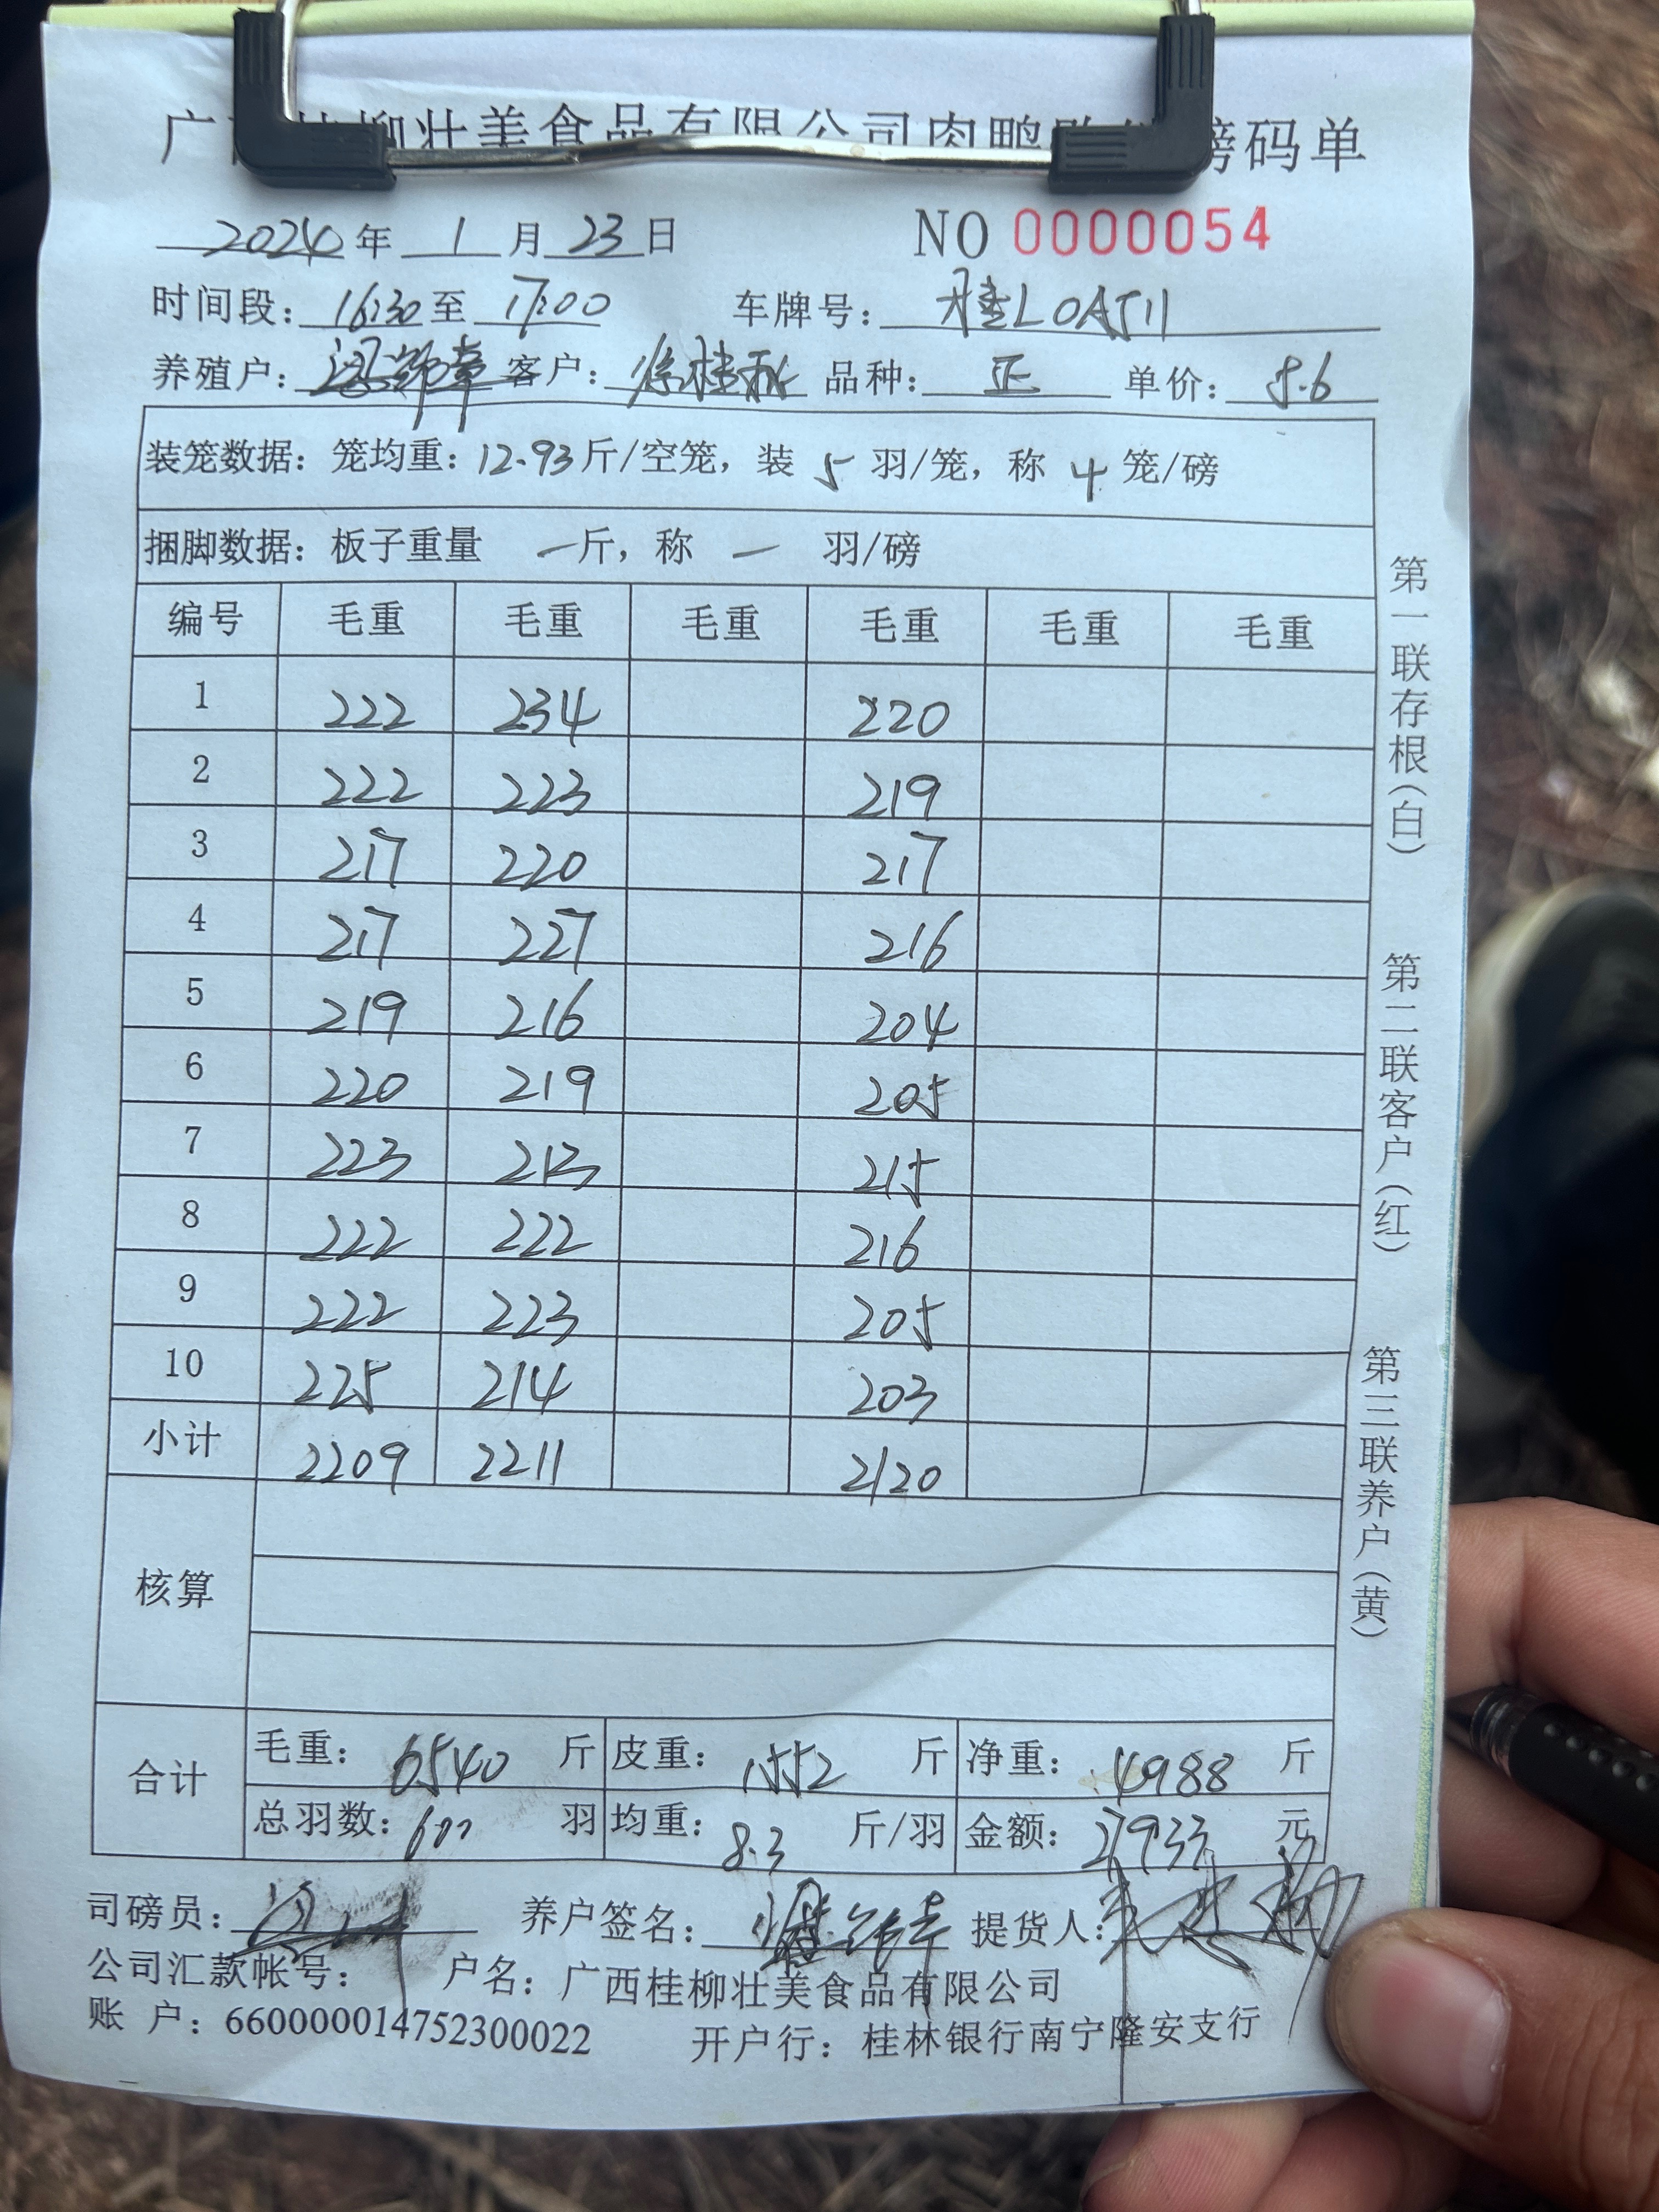 柳壮美食品有限公司肉鸭 磅码单
2024年 1 月 23 日 NO 0000054
时间段: 16:30 至 17:00 车牌号:
养殖户: 客户: 徐桂秋 品种: 正 单价: 5.6
装笼数据: 笼均重: 12.93 斤/空笼, 装 5 羽/笼, 称 4 笼/磅
捆脚数据: 板子重量 — 斤, 称 — 羽/磅
编号 毛重 毛重 毛重 毛重 毛重 毛重
1 222 234 220
2 222 223 219
3 217 220 217
4 217 227 216
5 219 216 204
6 220 219 205
7 223 213 215
8 222 222 216
9 222 223 205
10 225 214 203
小计 2209 2211 2120
核算
合计
毛重: 6540 斤 皮重: 1552 斤 净重: 4988 斤
总羽数: 600 羽 均重: 8.3 斤/羽 金额: 27933 元
司磅员: 养户签名: 提货人:
公司汇款帐号: 户名: 广西桂柳壮美食品有限公司
账 户: 660000014752300022 开户行: 桂林银行南宁隆安支行
第一联存根(白)
第二联客户(红)
第三联养户(黄)